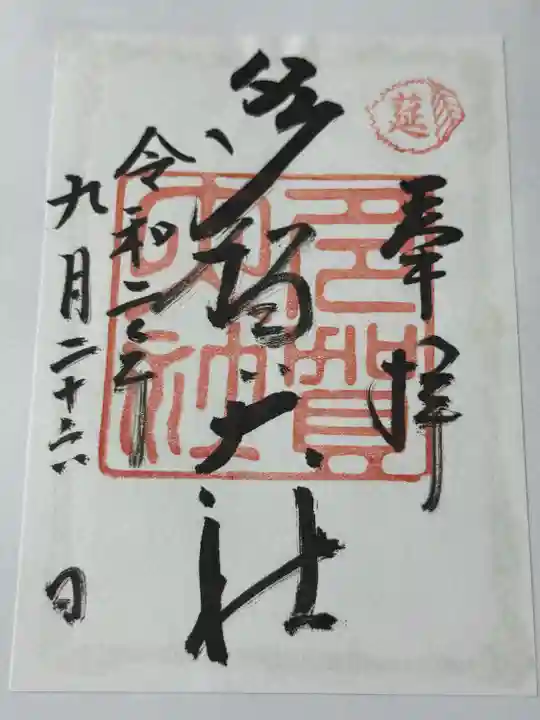 莚
奉拝
多賀大社
多賀大社
令和二年
九月二十六日